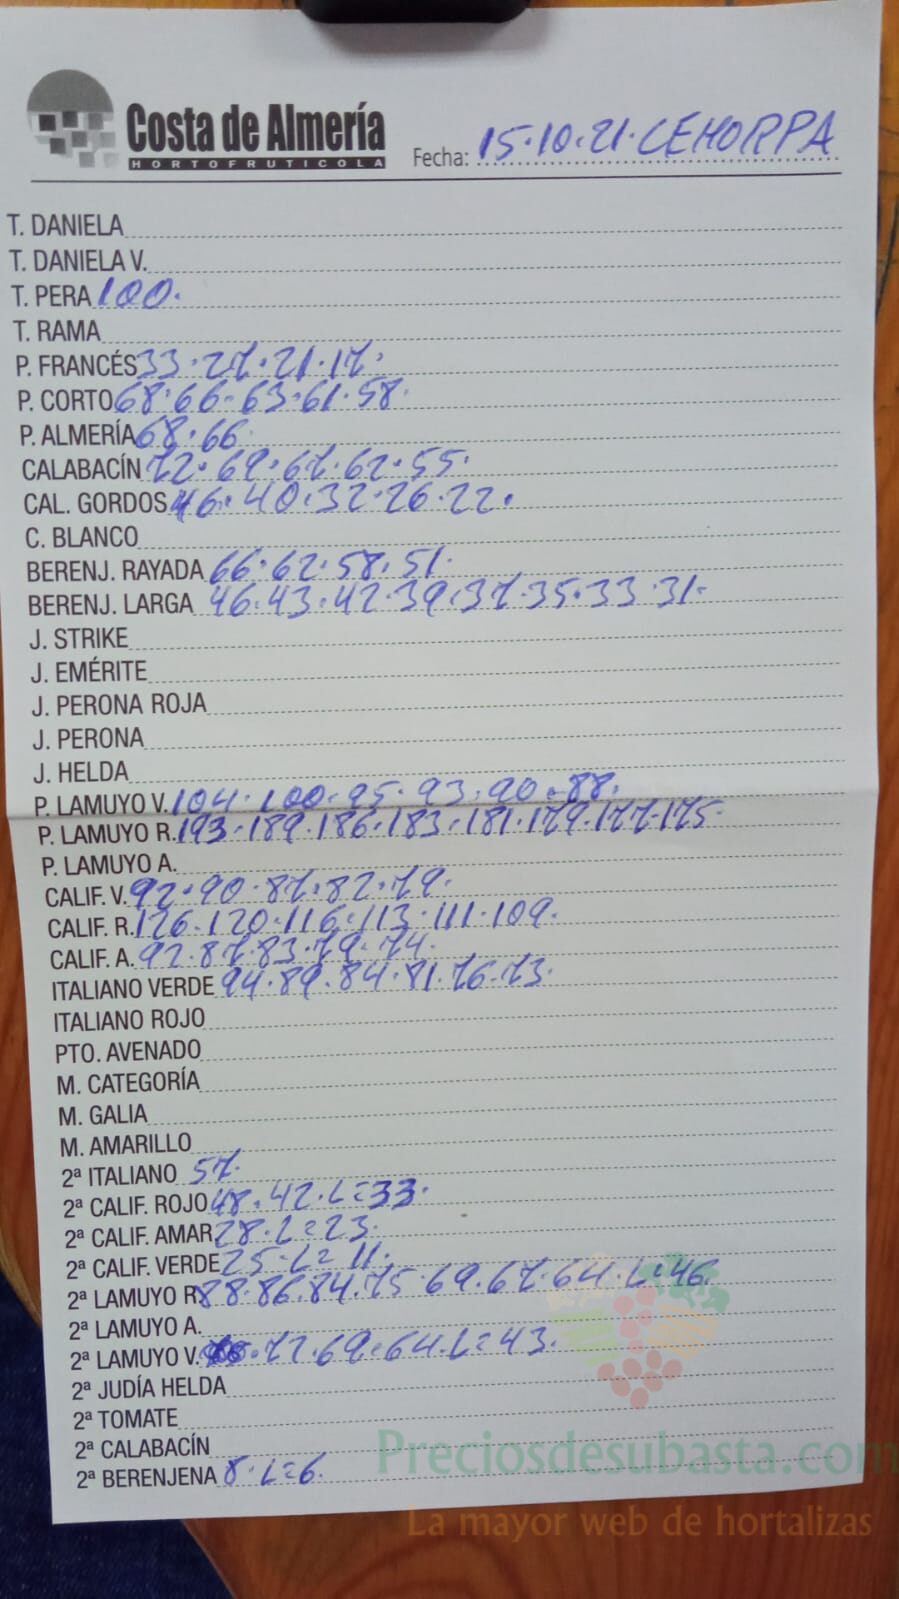 Costa de Almería
HORTOFRUTICOLA
Fecha: 15·10·21·CEHORPA
T. DANIELA
T. DANIELA V.
T. PERA 100·
T. RAMA
P. FRANCÉS 33·27·21·17·
P. CORTO 68·66·63·61·58·
P. ALMERÍA 68·66
CALABACÍN 72·69·67·62·55·
CAL. GORDOS 46·40·32·26·22·
C. BLANCO
BERENJ. RAYADA 66·62·58·51·
BERENJ. LARGA 46·43·42·39·37·35·33·31·
J. STRIKE
J. EMÉRITE
J. PERONA ROJA
J. PERONA
J. HELDA
P. LAMUYO V. 104·100·95·93·90·88·
P. LAMUYO R. 193·189·186·183·181·179·177·175·
P. LAMUYO A.
CALIF. V. 92·90·87·82·79·
CALIF. R. 126·120·116·113·111·109·
CALIF. A. 92·87·83·79·74·
ITALIANO VERDE 94·89·84·81·76·73·
ITALIANO ROJO
PTO. AVENADO
M. CATEGORÍA
M. GALIA
M. AMARILLO
2ª ITALIANO 57·
2ª CALIF. ROJO 48·42·L=33·
2ª CALIF. AMAR 28·L=23·
2ª CALIF. VERDE 25·L=11·
2ª LAMUYO R 88·86·84·75 69·67·64·L=46·
2ª LAMUYO A.
2ª LAMUYO V. ·72·69·64·L=43·
2ª JUDÍA HELDA
2ª TOMATE
2ª CALABACÍN
2ª BERENJENA 8·L=6·
Preciosdesubasta.com
La mayor web de hortalizas